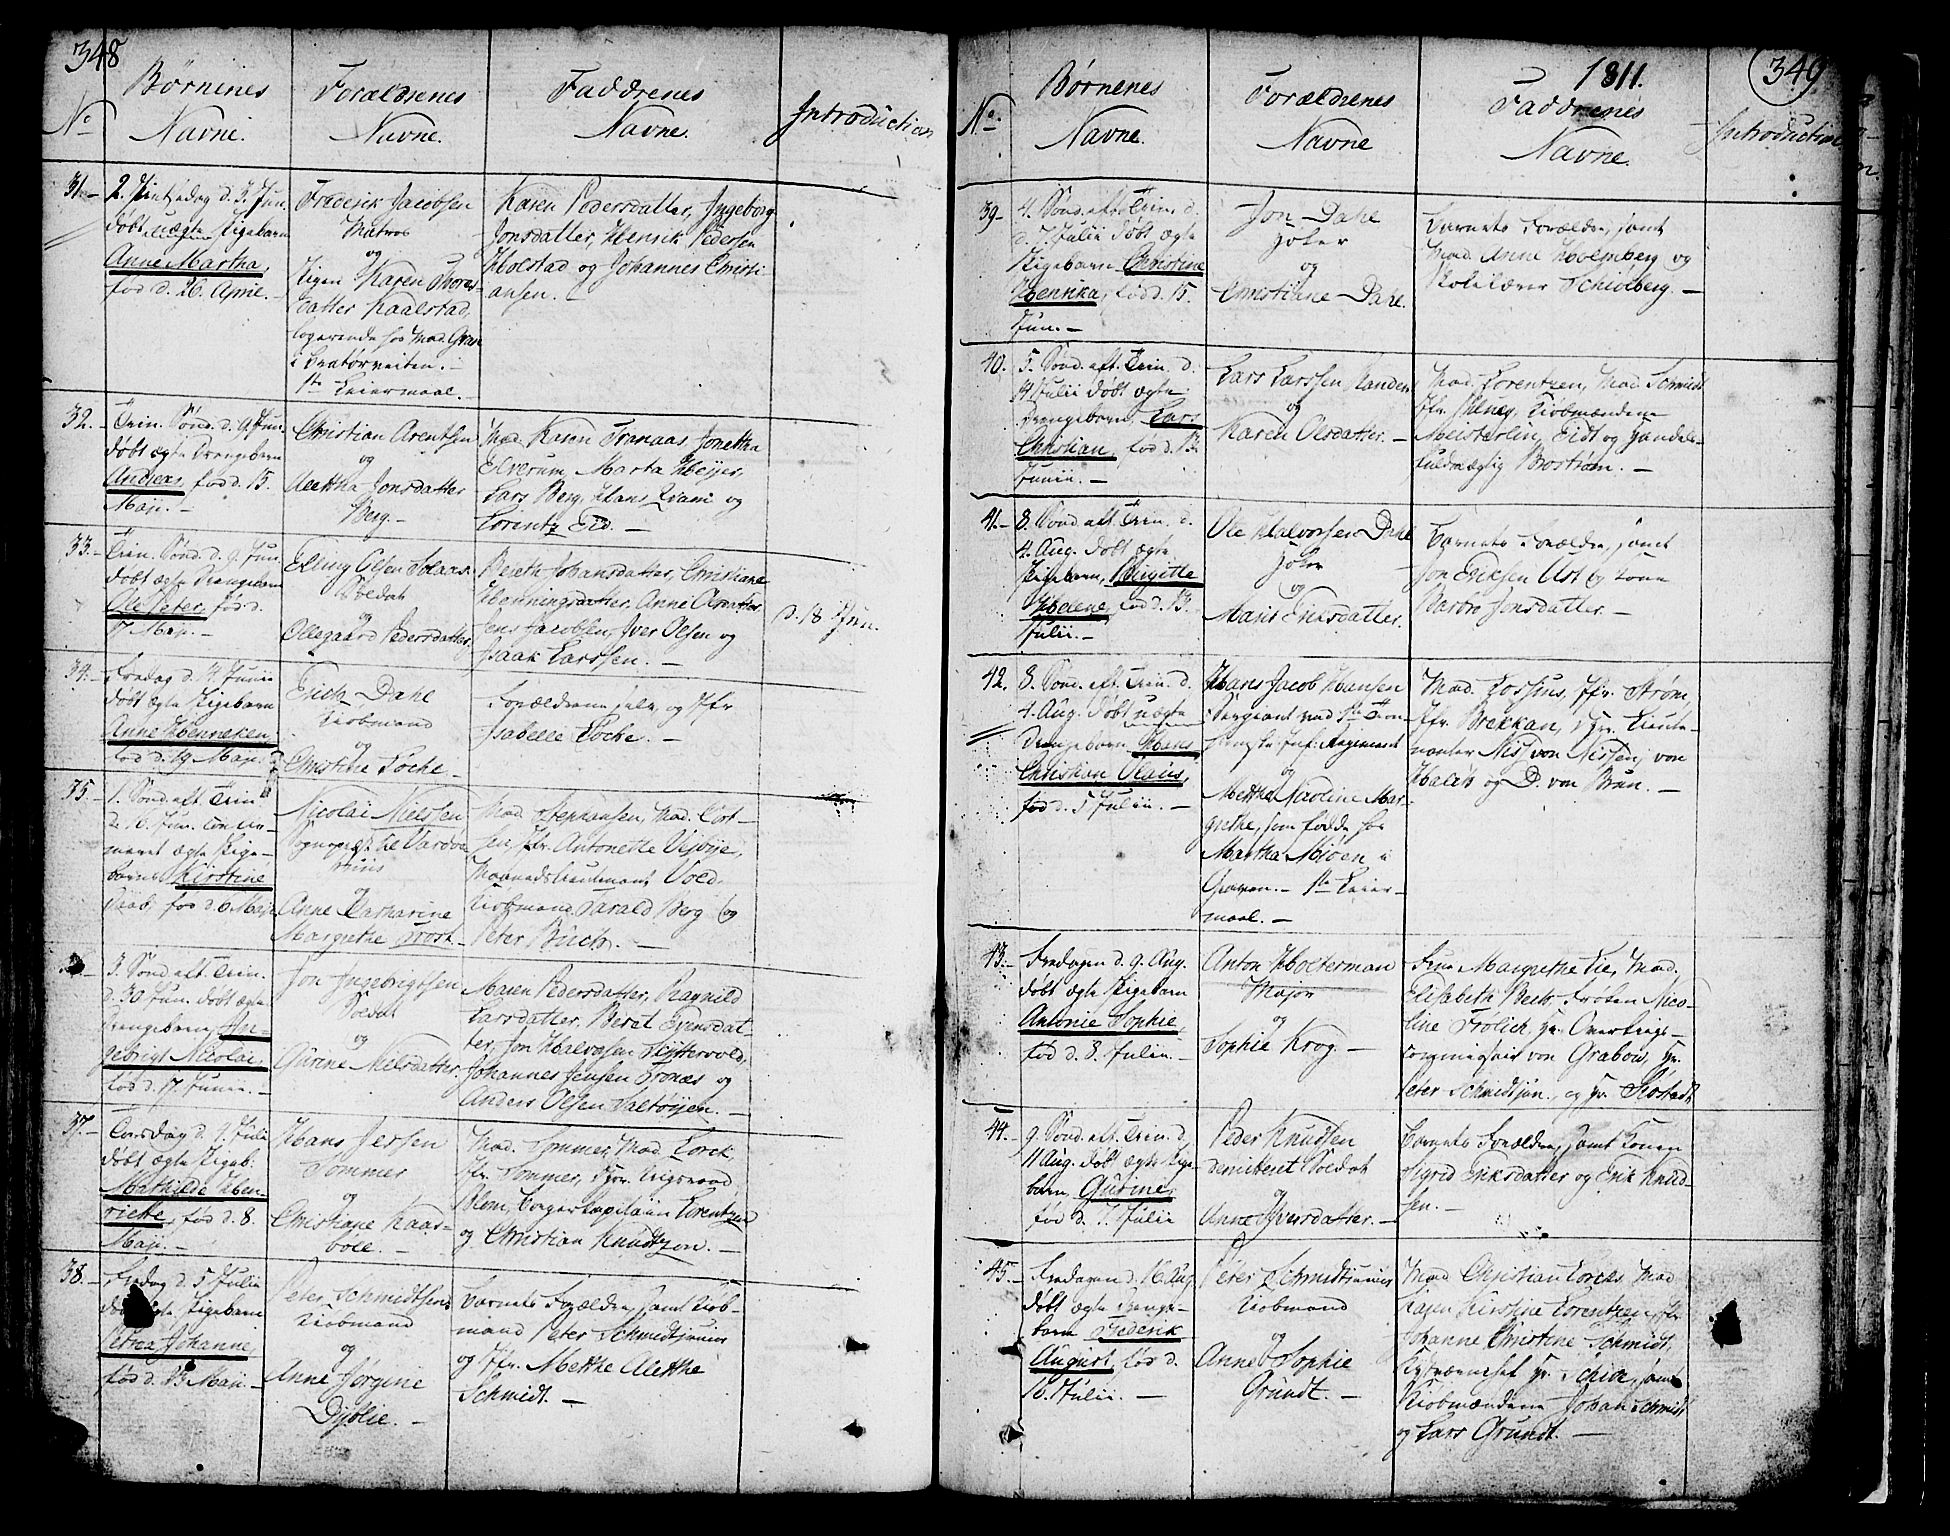 348
Børnenes
Navne.
Forældrenes
Navne.
Faddrenes
Navne.
Introduction
No
31.—
2. Pintsedag d. 3. Jun.
døbt uægte Pigebarn
Anne Martha,
fød d. 26. April. —
Frederik Jacobsen
Matros
og
Pigen Karen Thores-
datter Kaalstad,
logerende hos Mad. Gran
i Bratørveiten. —
1te Leiermaal. —
Karen Pedersdatter, Ingeborg
Jonsdatter, Henrik Pedersen
Holstad og Johannes Christi-
ansen. —
32.—
Trin. Sönd. d. 9 Jun.
døbt ægte Drengebarn
Andreas, fød d. 15.
Maji. —
Christian Arentsen
og
Alettha Jonsdatter
Berg. —
Mad. Karen Tranaas, Jonetha
Elverum, Marta Heijer,
Lars Berg, Hans Qvam og
Lorentz Eid. —
33.—
Trin. Sönd. d. 9. Jun.
døbt ægte Drengebarn
Ole Peter, fød d.
7 Maji. —
Elling Olsen Solaas
Soldat
og
Ollegaard Pedersdatter.
Bereth Johansdatter, Christiane
Henningsdatter, Anne Olsdatter,
Jens Jacobsen, Iver Olsen og
Isaak Larssen. —
d. 18 Jun.
34.—
Fredag d. 14. Junii
døbt ægte Pigebarn
Anne Henneken,
fød d. 19. Maji.
Erich Dahl
Kiøbmand
og
Christine Loche —
Forældrene selv, og Jfr
Isabelle Loche. —
35.—
1. Sönd. aft. Trin.
d. 16. Jun.
ægte Pige-
barn Kirstine
fød d. 6 Maji
Nicolai Nielsen
Sognepræst til Vardø-
og
Anne Catharine
Margrethe Trost. —
Mad. Stephansen, Mad. Lort-
sen, Jfr. Antonette Visbÿe,
Maanedslieutenant Vold,
Kiøbmand Harald Berg og
Peter Buch. —
3. Sönd aft. Trin.
d. 30 Jun. døbt ægte
Drengebarn, In-
gebrigt Nicolai,
fød d. 17. Junii. —
Jon Ingebrigtsen
Soldat
og
Gurine Nielsdatter.
Maren Pedersdatter, Ragnild
Larsdatter, Beret Svensdat-
ter, Jon Halvorsen Flÿttervold,
Johannes Jensen Tronæs og
Anders Olsen Saltøÿen. —
37.—
Tirsdag d. 9. Julii
døbt ægte Pigeb.
Mathilde Hen-
riette, fød d. 8.
Maji. —
Hans Jessen
Sommer
og
Christiane Kaas-
bøll. —
Mad. Sommer, Mad. Lorck,
Jfr. Sommer, Hr. Krigsraad
Blom, Borgerkapitain Lorentzen
og Christian Knudtzon. —
38.—
Fredag d. 5 Julii
døbt ægte Pigebarn
Petrea Johanne,
fød d. 13 Maji —
Peter Schmidt
Kiøbmand
og
Anne Jørgine
Dÿblie. —
Barnets Forældre, samt Kiøb-
mand Peter Schmidt junior
og Jfr. Metthe Alethe
Schmidt. —
1811.
349
No.
Børnenes
Navne.
Forældrenes
Navne
Faddrenes
Navne.
Introduction
39—
4. Sönd. aft. Trin. d.
d. 7. Julii døbt ægte
Pigebarn Christine
Hennika, fød d. 15.
Jun. —
Jon Dahl
Joker
og
Christiane Dahl.
Barnets Forældre, samt
Mad. Anne Holmberg og
Skolelærer Schiølberg. —
40.
5. Sönd. aft. Trin. d.
14 Julii døbt ægte
Drengebarn, Lars
Christian, fød d. 13.
Junii. —
Lars Larssen, Randen
og
Karen Olsdatter. —
Mad. Lorentzen, Mad. Schmidt
Jfr. Kiøbmændene
Meisterlin, Eidt og Handels-
fuldmægtig Brostrøm. —
41.—
8. Sönd aft. Trin. d.
4. Aug. døbt ægte
Pigebarn, Birgitte
Helene, fød d. 13.
Julii. —
Ole Halvorsen Dahl
Joker
og
Marit Eriksdatter.
Barnets Forældre, samt
Jon Eriksen Ust og Kone
Barbro Jonsdatter. —
42.
8. Sönd. aft. Trin. d.
4. Aug. døbt uægte
Drengebarn Hans
Christian Olaus,
fød d. 5 Julii. —
Hans Jacob Hansen
Sergiant ved 1te Tron-
hiemske Inf. Regiement
og
Metthe Karoline Mar-
grethe, som fødde hos
Martha Miöen i
Graven. — 1te Leier-
maal. —
Mad. Fossius, Jfr. Strøm,
Jfr. Brekkan, Hr. Lieute-
nanter Nissen von Nissen, von
Hals og D. von Brun. —
43.—
Fredagen d. 9. Aug.
døbt ægte Pigebarn
Antonie Sophie,
fød d. 8. Julii. —
Anton Holterman
Major
og
Sophie Krog. —
Frue Margrethe Lie, Mad.
Elisabeth Beck, Frøken Nico-
line Frölich, Hr. Overkrigs-
commissair von Grabow, Hr.
Peter Schmidt jun., og Hr. Rostad.
44.—
9. Sönd. aft. Trin. d.
11 Aug. døbt ægte Pige-
barn, Gurine,
fød d. 7. Julii
Peder Knudsen
demitteret Soldat
og
Anne Iversdatter. —
Barnets Forældre, samt Konen
Sigrid Eriksdatter og Erik Knud-
sen. —
45.—
Fredagen d. 16 Aug.
døbt ægte Drenge-
barn Frederik
August, fød d.
16. Julii. —
Peter Schmidt junior
Kiøbmand
og
Anne Sophie
Grundt. —
Mad Christian Lorck, Mad
Karen Kirstine Lorentzen, Jfr.
Johanne Christine Schmidt,
Hr. Schiøt, samt
Kiøbmændene Johan Schmidt
og Lars Grundt. —